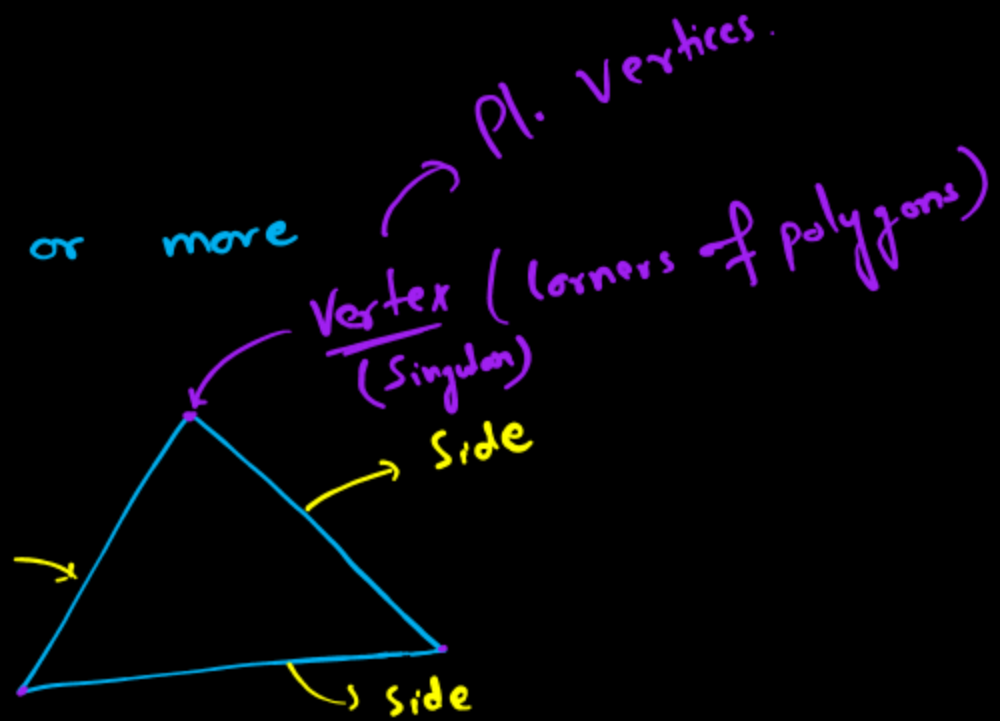 Pl. vertices.
or more
Vertex (corners of polygons)
(Singular)
Side
Side